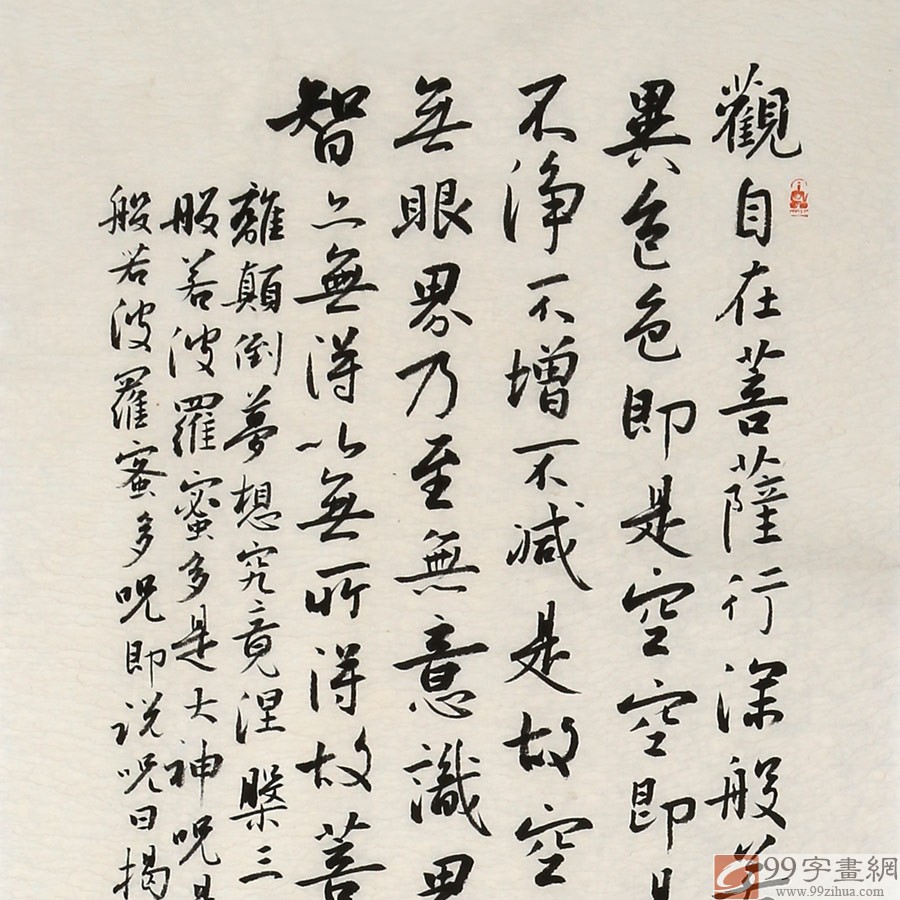 觀自在菩薩行深般若
異色色即是空空即是
不淨不增不減是故空
無眼界乃至無意識界
智亦無得以無所得故菩
離顛倒夢想究竟涅槃三
般若波羅蜜多是大神呪是
般若波羅蜜多呪即説呪曰揭
99字畫網
www.99zihua.com